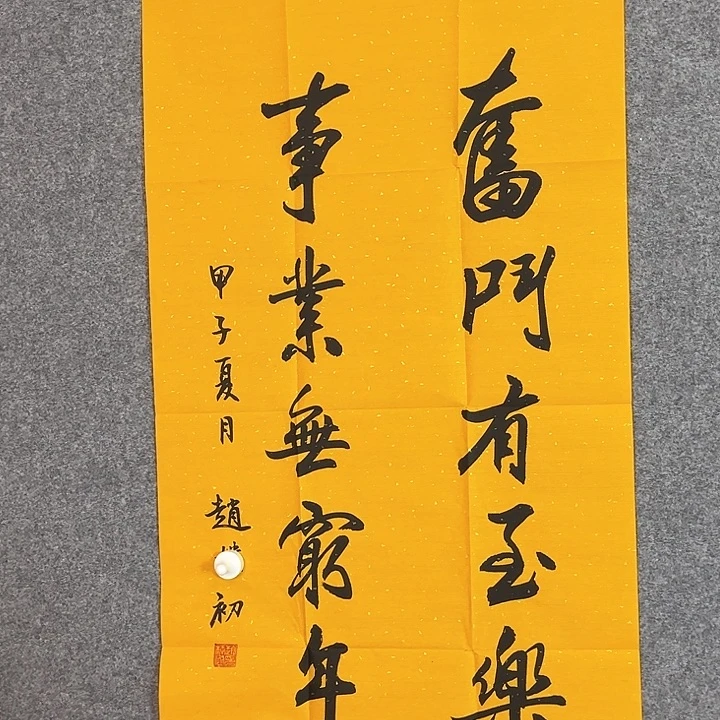 奮鬥有至樂
事業無窮年
甲子夏月
趙 初